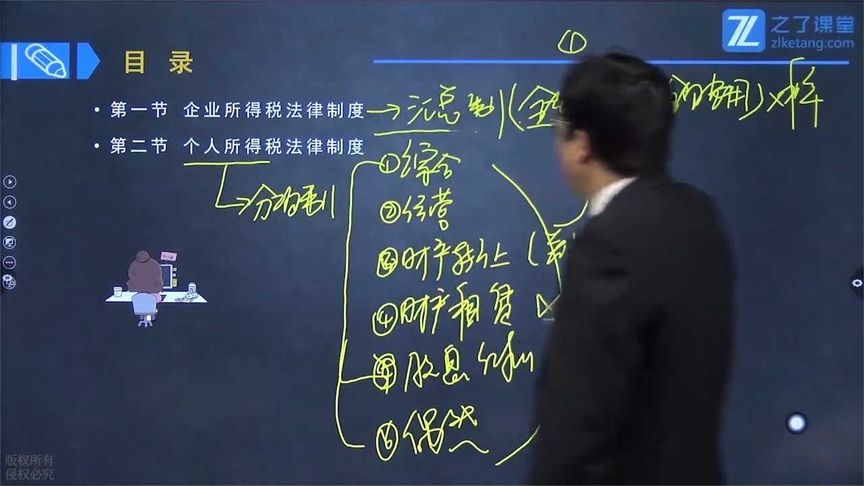 之了课堂
zlketang.com
目 录
①
• 第一节 企业所得税法律制度 → 汇总制
• 第二节 个人所得税法律制度
分项制
①综合
②经营
③财产转让
④财产租赁
股息
⑥偶然
版权所有
侵权必究